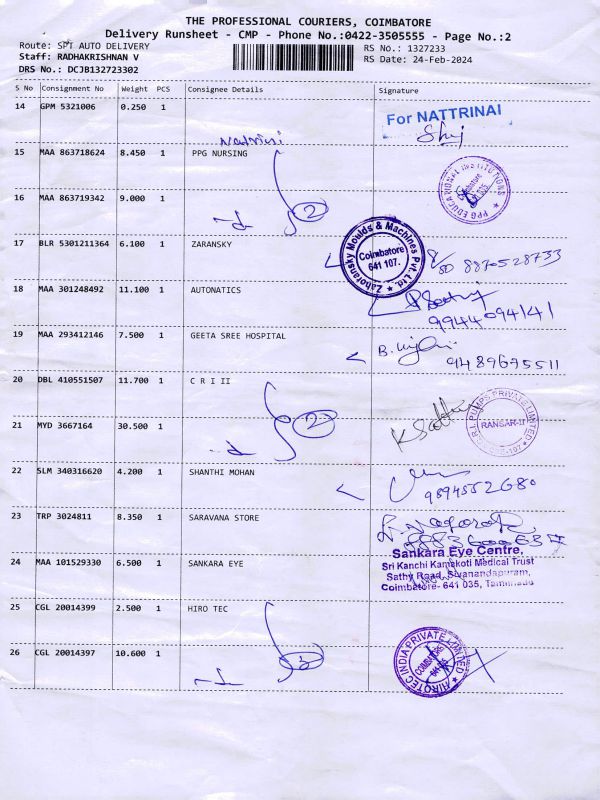 THE PROFESSIONAL COURIERS, COIMBATORE
Delivery Runsheet - CMP - Phone No.:0422-3505555 - Page No.:2
Route: SPT AUTO DELIVERY
RS No.: 1327233
Staff: RADHAKRISHNAN V
RS Date: 24-Feb-2024
DRS No.: DCJB132723302
S No Consignment No Weight PCS Consignee Details Signature
14 GPM 5321006 0.250 1
For NATTRINAI
15 MAA 863718624 8.450 1 PPG NURSING
PPG EDUCATIONAL INSTITUTIONS
16 MAA 863719342 9.000 1
2
17 BLR 5301211364 6.100 1 ZARANSKY
Zahoransky Moulds & Machines Pvt. Ltd.
Coimbatore
641 107.
8870528733
18 MAA 301248492 11.100 1 AUTONATICS
9944094141
19 MAA 293412146 7.500 1 GEETA SREE HOSPITAL
9489675511
20 DBL 410551507 11.700 1 C R I I I
21 MYD 3667164 30.500 1
2
C.R.I. PUMPS PRIVATE LIMITED
RANSAR-II
22 SLM 340316620 4.200 1 SHANTHI MOHAN
9894552680
23 TRP 3024811 8.350 1 SARAVANA STORE
24 MAA 101529330 6.500 1 SANKARA EYE
Sankara Eye Centre,
Sri Kanchi Kamakoti Medical Trust
Sathy Road, Sivanandapuram,
Coimbatore- 641 035, Tamilnadu
25 CGL 20014399 2.500 1 HIRO TEC
26 CGL 20014397 10.600 1
HIROTEC INDIA PRIVATE LIMITED
COIMBATORE